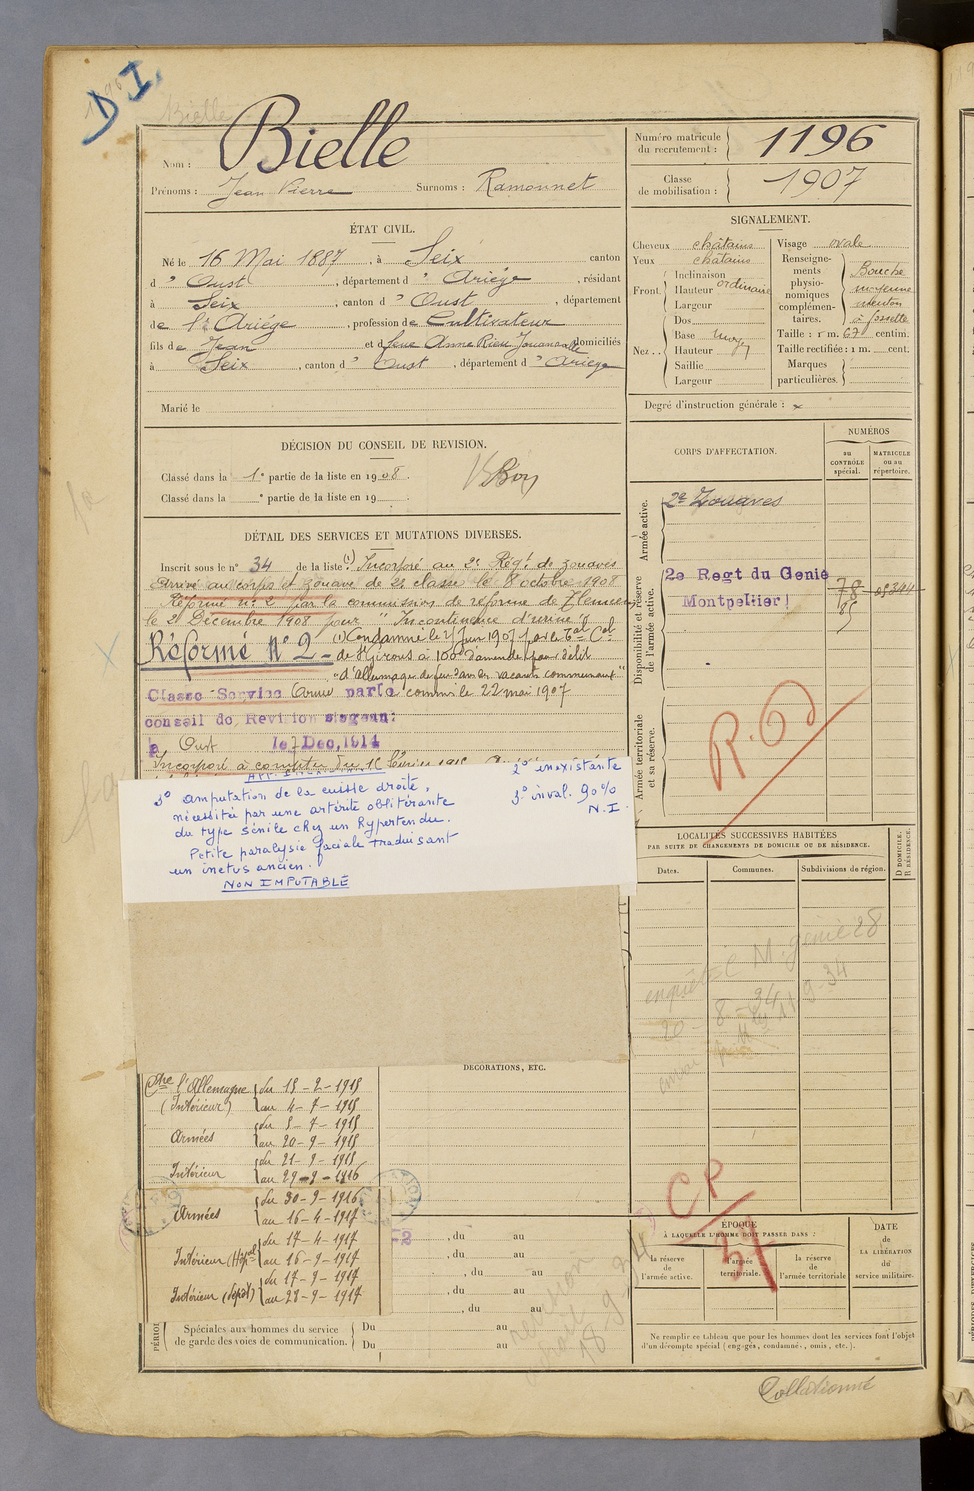 D I
Bielle
Nom : Bielle
Prénoms : Jean Pierre Surnoms : Ramonnet
Numéro matricule du recrutement : 1196
Classe de mobilisation : 1907
ÉTAT CIVIL.
Né le 16 Mai 1887, à Seix canton
d » Oust, département d » Ariège, résidant
à Seix, canton d » Oust, département
de l'Ariége, profession de Cultivateur
fils de Jean et de feue Anne Rieu domiciliés
à Seix, canton d » Oust, département d » Ariege
Marié le
SIGNALEMENT.
Cheveux chatains
Yeux chatains
Front. Inclinaison
Hauteur ordinaire
Largeur
Nez .. Dos
Base moyen
Hauteur
Saillie
Largeur
Visage ovale
Renseignements physionomiques complémentaires. Bouche
moyenne
menton
à fossette
Taille : 1 m. 67 centim.
Taille rectifiée : 1 m. cent.
Marques particulières.
Degré d'instruction générale : x
DÉCISION DU CONSEIL DE REVISION.
Classé dans la 1e partie de la liste en 1908.
Classé dans la e partie de la liste en 19
Bon
DÉTAIL DES SERVICES ET MUTATIONS DIVERSES.
Inscrit sous le no 34 de la liste (1) Incorporé au 2e Régt de zouaves
Arrivé au corps et zouave de 2e classe le 8 octobre 1908
Réformé no 2 par la commission de réforme de Tlemcen
le 2 Décembre 1908 pour "Incontinence d'urine"
Réformé No 2 (1) Condamné le 21 Juin 1907 par le Tal Cel
de St Girons à 100f d'amende pour délit
"d'allumage de feu dans les vacants communaux"
Classe Service Armé par le commis le 22 mai 1907
conseil de Revision siegeant
à Oust le 7 Dec. 1914
Incorporé à compter du
3o amputation de la cuisse droite,
nécessitée par une artérite oblitérante
du type sénile chez un hypertendu.
Petite paralysie faciale traduisant
un ictus ancien.
NON IMPUTABLE
2o inexistante
3o inval. 90%
N.I.
CORPS D'AFFECTATION.
NUMÉROS
au CONTRÔLE spécial.
MATRICULE ou au répertoire.
Armée active.
2e Zouaves
Disponibilité et réserve de l'armée active.
2e Regt du Genie
Montpellier
78
85
Armée territoriale et sa réserve.
R.O
LOCALITÉS SUCCESSIVES HABITÉES
PAR SUITE DE CHANGEMENTS DE DOMICILE OU DE RÉSIDENCE.
Dates.
Communes.
Subdivisions de région.
D DOMICILE,
R RÉSIDENCE.
M. génie 28
20-8-34
11-9-34
DÉCORATIONS, ETC.
Ctre l'Allemagne du 15-2-1915
(Intérieur) au 4-7-1915
Armées du 5-7-1915
au 20-9-1915
Intérieur du 21-9-1915
au 29-9-1916
Armées du 30-9-1916
au 16-4-1917
Intérieur (Hôpal) du 17-4-1917
au 16-9-1917
Intérieur (dépôt) du 17-9-1917
au 23-9-1917
, du au
, du au
, du au
, du au
, du au
Spéciales aux hommes du service de garde des voies de communication.
Du au
Du au
CP
37
ÉPOQUE
À LAQUELLE L'HOMME DOIT PASSER DANS :
la réserve de l'armée active.
l'armée territoriale.
la réserve de l'armée territoriale
DATE
de
LA LIBÉRATION
du
service militaire.
Ne remplir ce tableau que pour les hommes dont les services font l'objet
d'un décompte spécial (engagés, condamnés, omis, etc.).
Collationné